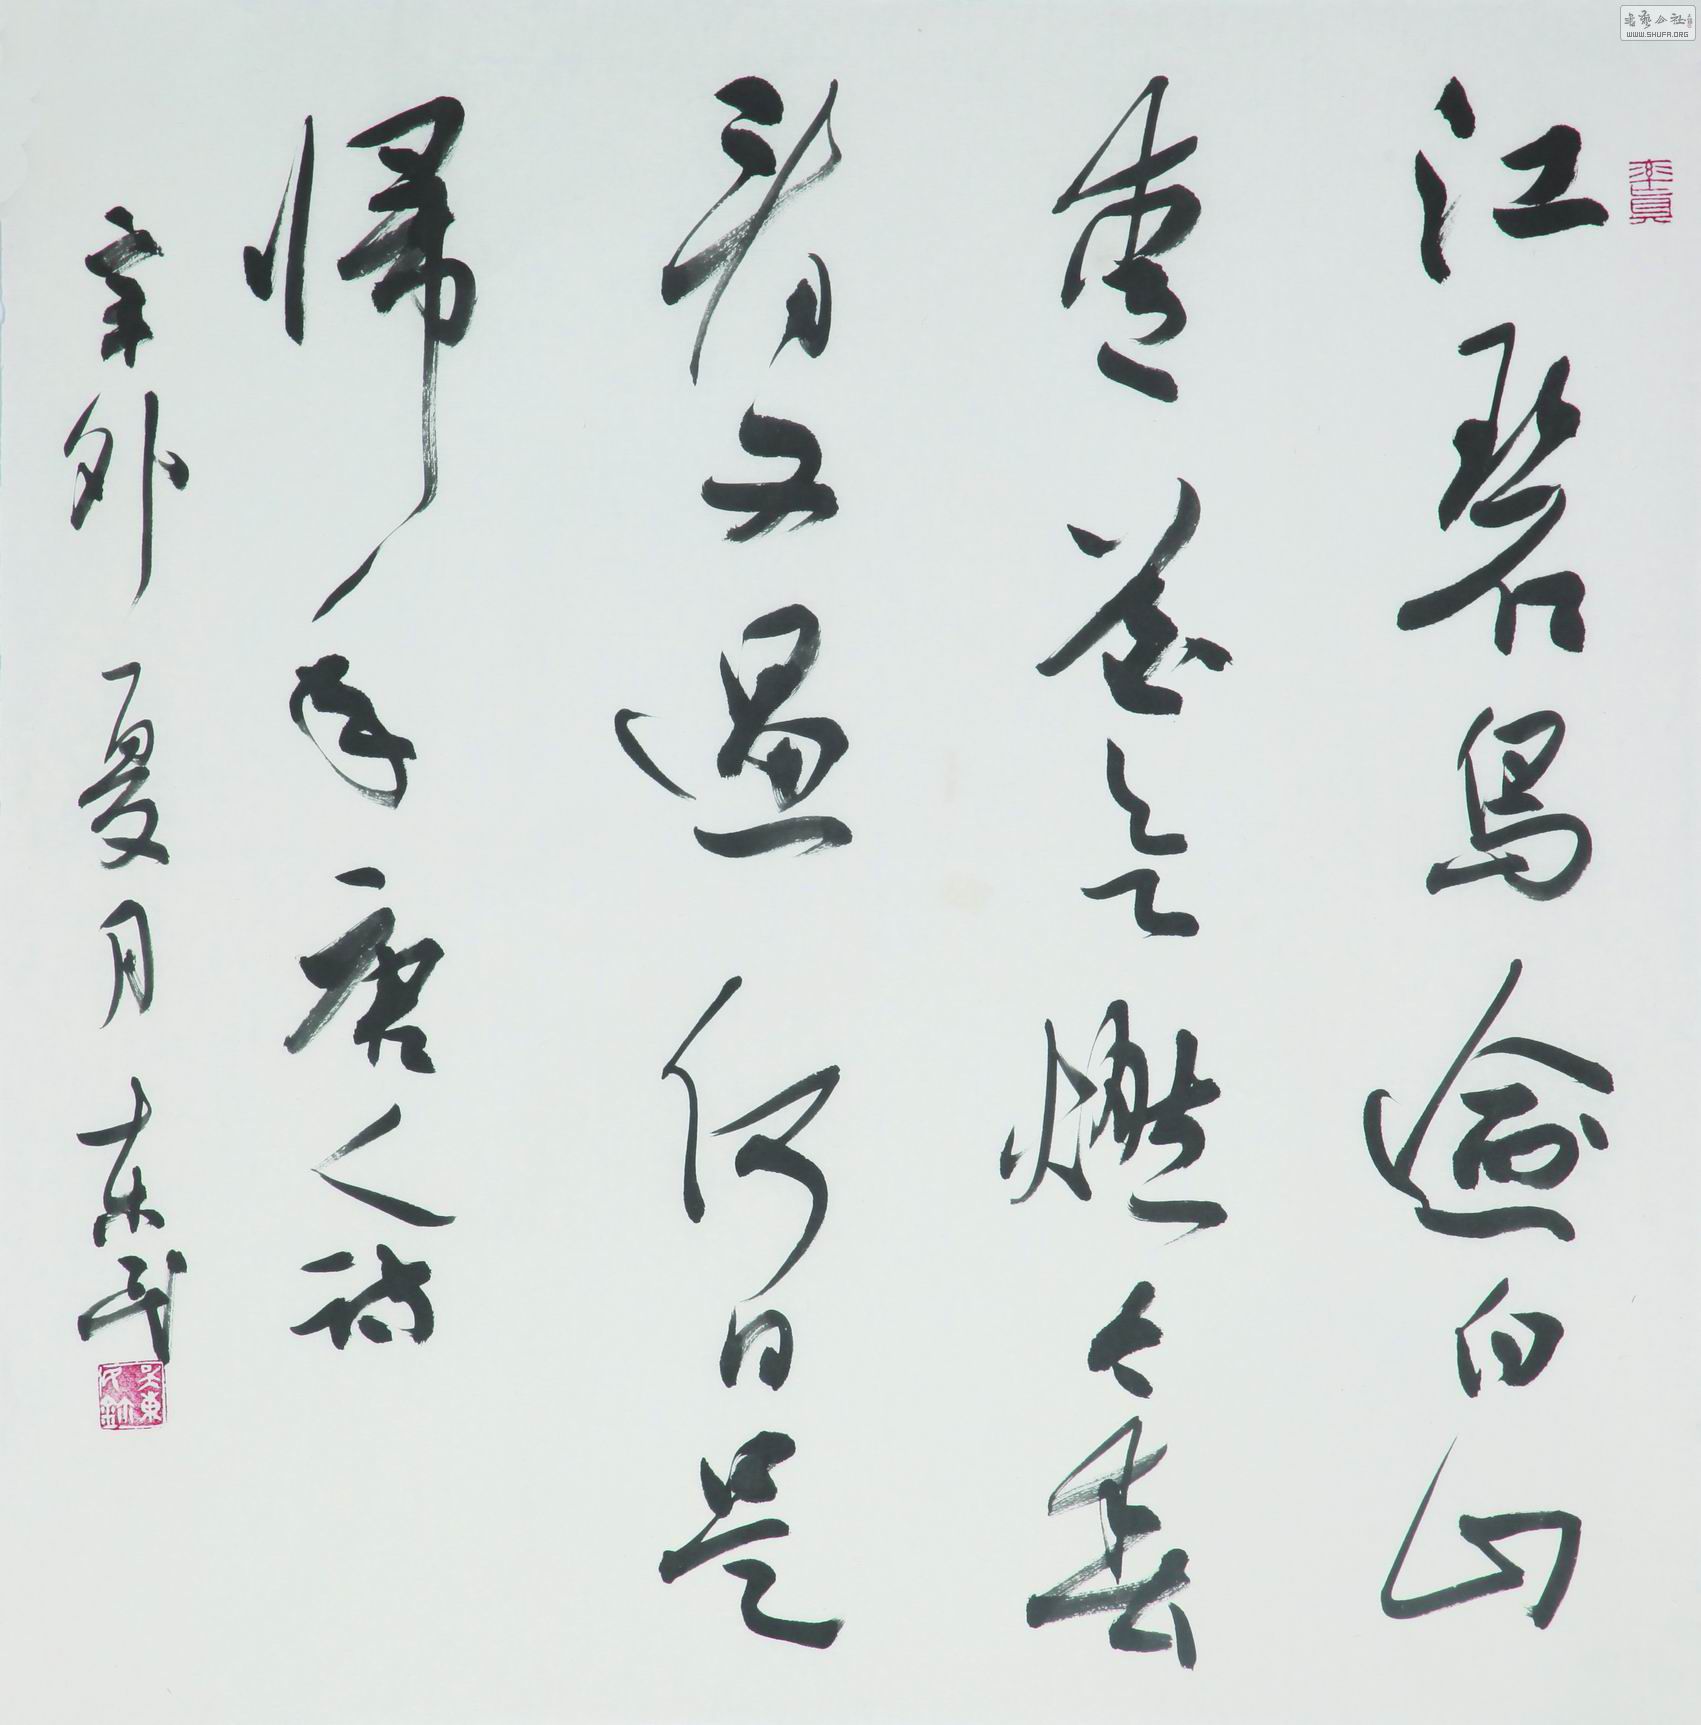 江碧鳥逾白山
青花欲燃今春
看又過何日是
帰年唐人詩
辛卯夏月東民
率真
WWW.SHUFA.ORG